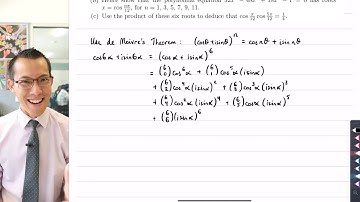 (b) Hence show that the polynomial equation 32x⁶ − 48x⁴ + 18x² − 1 = 0 has roots
x = cos nπ/12, for n = 1, 3, 5, 7, 9, 11.
(c) Use the product of these six roots to deduce that cos π/12 cos 5π/12 = 1/4.
Use de Moivre's Theorem: (cosθ + isinθ)ⁿ = cosnθ + isinnθ
cos6α + isin6α = (cosα + isinα)⁶
= (6 0)cos⁶α + (6 1)cos⁵α(isinα)
+ (6 2)cos⁴α(isinα)² + (6 3)cos³α(isinα)³
+ (6 4)cos²α(isinα)⁴ + (6 5)cosα(isinα)⁵
+ (6 6)(isinα)⁶